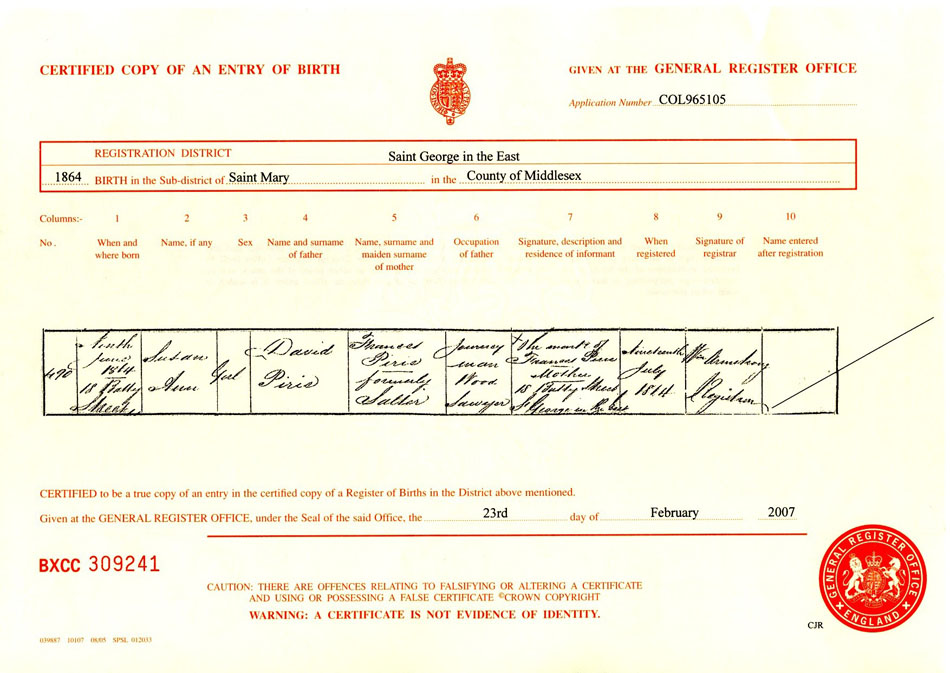 CERTIFIED COPY OF AN ENTRY OF BIRTH
GIVEN AT THE GENERAL REGISTER OFFICE
Application Number COL965105
REGISTRATION DISTRICT Saint George in the East
1864 BIRTH in the Sub-district of Saint Mary in the County of Middlesex
Columns:- 1 2 3 4 5 6 7 8 9 10
No. When and where born Name, if any Sex Name and surname of father Name, surname and maiden surname of mother Occupation of father Signature, description and residence of informant When registered Signature of registrar Name entered after registration
490
Tenth
June
1864
18 Batty
Street
Susan
Ann
Girl
David
Piris
Frances
Piris
formerly
Salter
Journey
man
Wood
Sawyer
The mark of
Frances Piris
Mother
18 Batty Street
St George in the East
Nineteenth
July
1864
Wm Armstrong
Registrar
CERTIFIED to be a true copy of an entry in the certified copy of a Register of Births in the District above mentioned.
Given at the GENERAL REGISTER OFFICE, under the Seal of the said Office, the 23rd day of February 2007
BXCC 309241
CAUTION: THERE ARE OFFENCES RELATING TO FALSIFYING OR ALTERING A CERTIFICATE
AND USING OR POSSESSING A FALSE CERTIFICATE ©CROWN COPYRIGHT
WARNING: A CERTIFICATE IS NOT EVIDENCE OF IDENTITY.
GENERAL REGISTER OFFICE
ENGLAND
CJR
10107 08/05 SPSL 012033